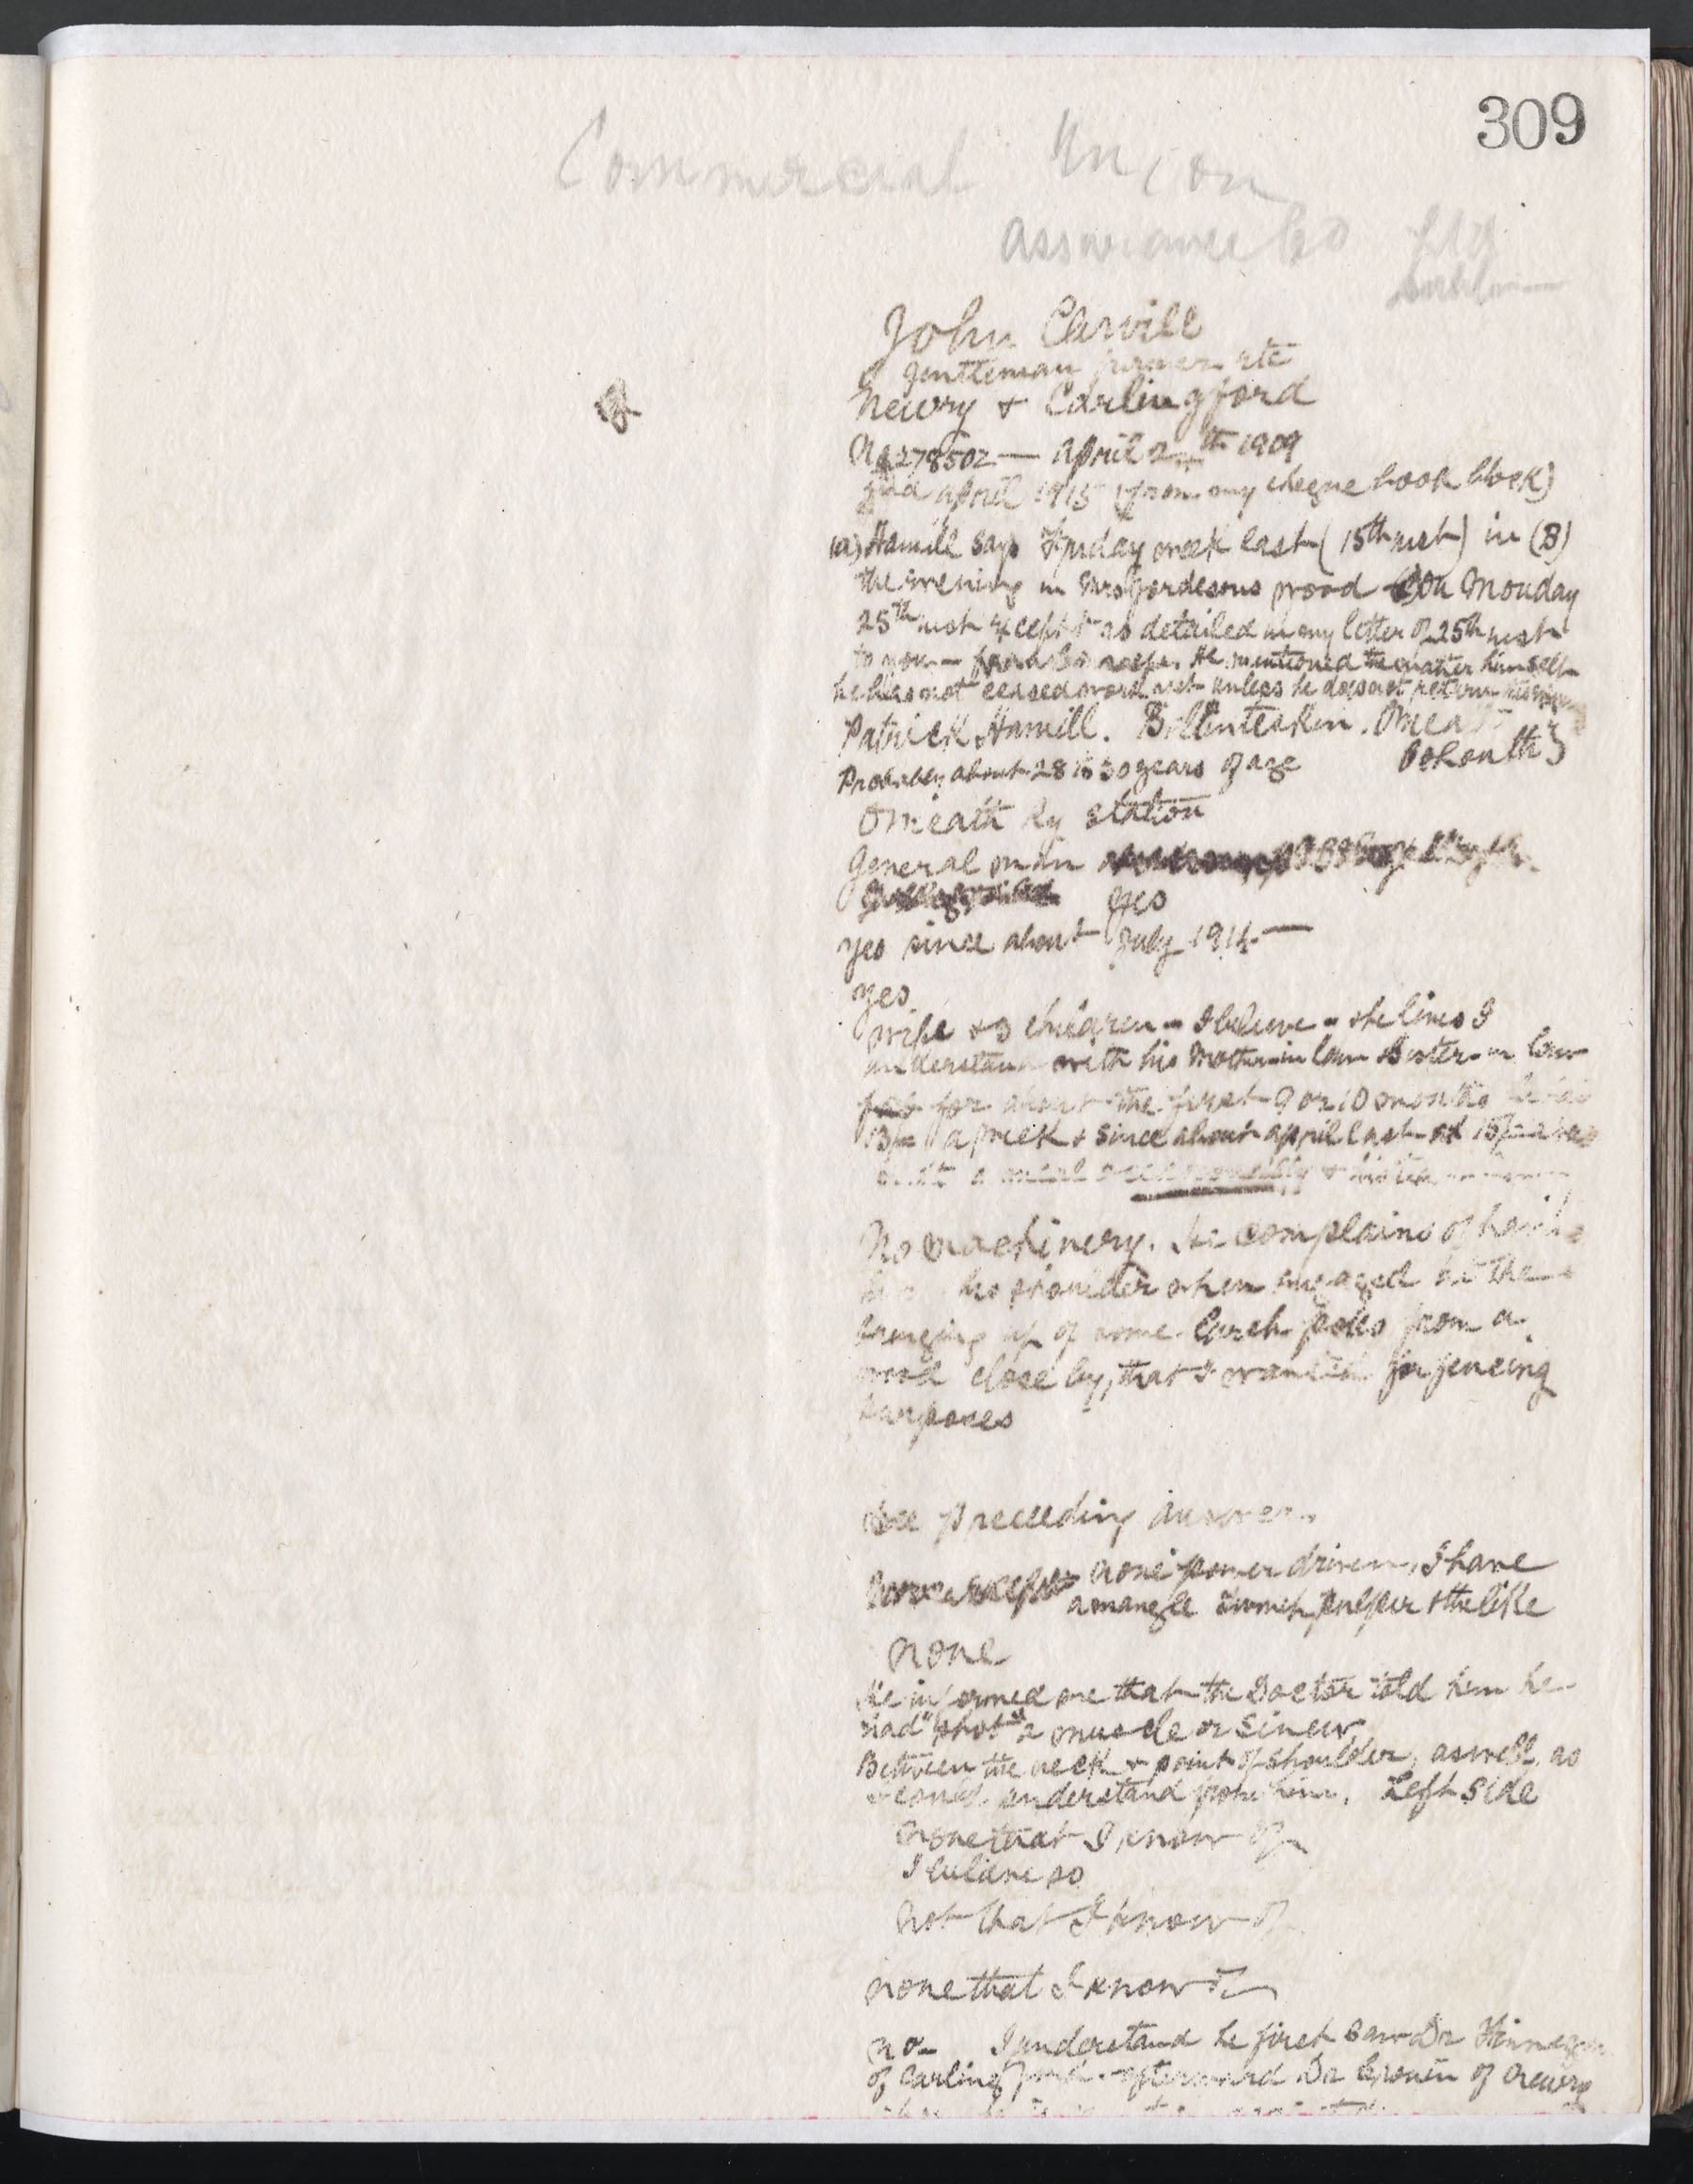 309
Commercial Union
Assurance Co Ltd
Dublin
John Carvill
Gentleman farmer etc
Newry & Carlingford
No 278502 — April 2 th 1909
paid April 1915 (from my cheque book block)
(a) Hamill says Friday week last (15th inst) in (B)
the evening in Mrs wood On Monday
25th inst except as detailed in my letter of 25th inst
to you — He mentioned the matter himself
he has not ceased work yet unless he does not return
Patrick Hamill. Omeath
Co Louth
Probably about 28 to 30 years of age
Omeath Ry station
General man
yes
yes since about July 1914 —
yes.
wife & 3 children - I believe - she lives I
understand with his Mother in law & Sister in law
for about the first 9 or 10 months he had
13/- a week & since about April last at 15/-
a meal occasionally
No machinery. He complains of
his shoulder when engaged at the
bringing up of some larch poles from a
wood close by, that I wanted for fencing
purposes
See preceeding answer.
none power driven, I have
a mangle turnip pulper & the like
none
He informed me that the Doctor told him he
had "shot" a muscle or sinew
Between the neck & point of shoulder, as well as
I could understand from him. Left side
None that I know of
I believe so
Not that I know of
none that I know of
no - I understand he first saw Dr Finnegan
of Carlingford - afterward Dr of Newry